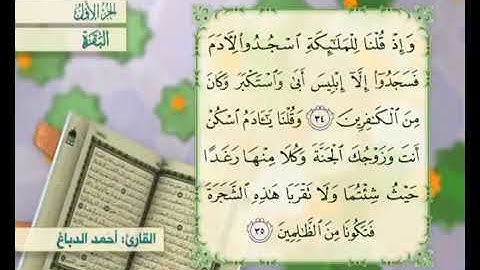 الجزء الأول
البقرة
وَإِذْ قُلْنَا لِلْمَلَـٰٓئِكَةِ ٱسْجُدُوا۟ لِـَٔادَمَ
فَسَجَدُوٓا۟ إِلَّآ إِبْلِيسَ أَبَىٰ وَٱسْتَكْبَرَ وَكَانَ
مِنَ ٱلْكَـٰفِرِينَ ٣٤ وَقُلْنَا يَـٰٓـَٔادَمُ ٱسْكُنْ
أَنتَ وَزَوْجُكَ ٱلْجَنَّةَ وَكُلَا مِنْهَا رَغَدًا
حَيْثُ شِئْتُمَا وَلَا تَقْرَبَا هَـٰذِهِ ٱلشَّجَرَةَ
فَتَكُونَا مِنَ ٱلظَّـٰلِمِينَ ٣٥
القارئ: أحمد الدباغ